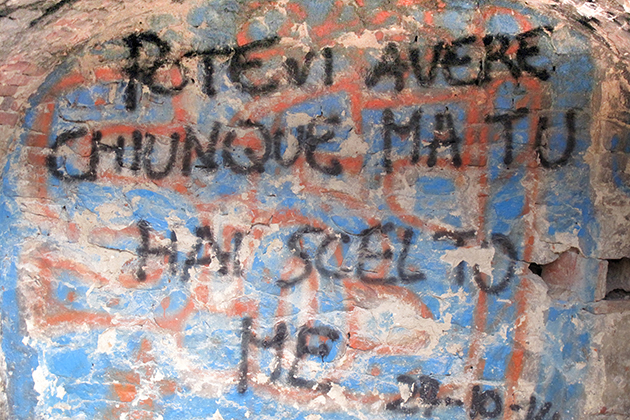 POTEVI AVERE
CHIUNQUE MA TU
HAI SCELTO
ME